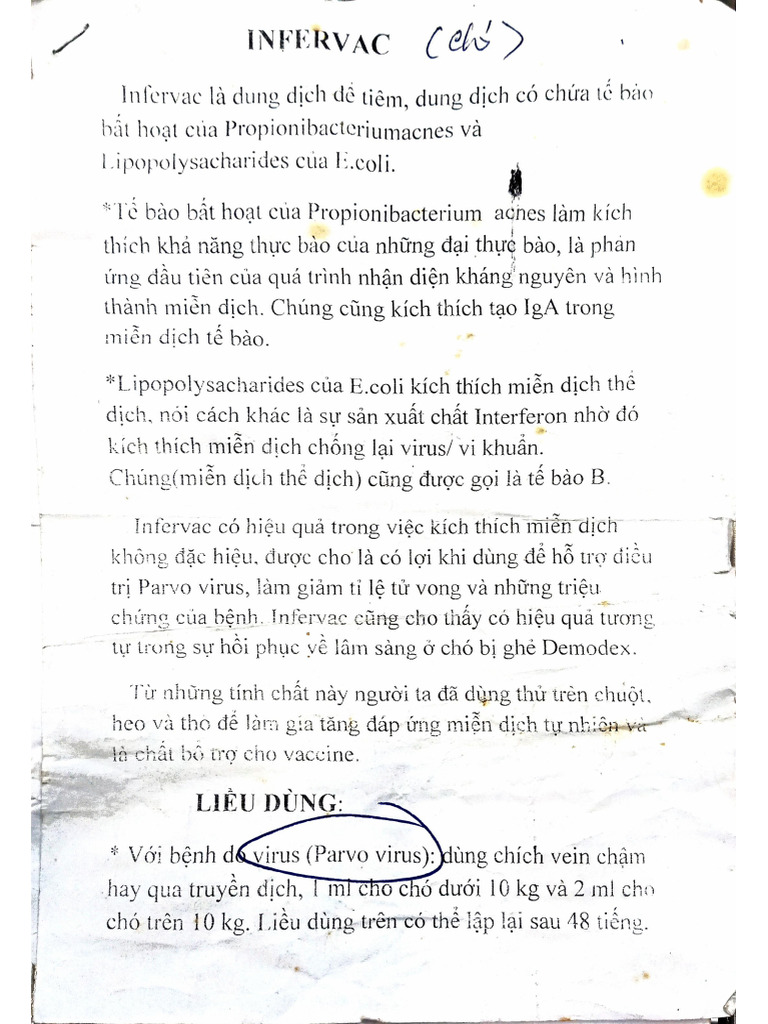 INFERVAC (chó)
Infervac là dung dịch để tiêm, dung dịch có chứa tế bào
bất hoạt của Propionibacteriumacnes và
Lipopolysacharides của E.coli.
*Tế bào bất hoạt của Propionibacterium acnes làm kích
thích khả năng thực bào của những đại thực bào, là phản
ứng đầu tiên của quá trình nhận diện kháng nguyên và hình
thành miễn dịch. Chúng cũng kích thích tạo IgA trong
miễn dịch tế bào.
*Lipopolysacharides của E.coli kích thích miễn dịch thể
dịch, nói cách khác là sự sản xuất chất Interferon nhờ đó
kích thích miễn dịch chống lại virus/ vi khuẩn.
Chúng(miễn dịch thể dịch) cũng được gọi là tế bào B.
Infervac có hiệu quả trong việc kích thích miễn dịch
không đặc hiệu, được cho là có lợi khi dùng để hỗ trợ điều
trị Parvo virus, làm giảm tỉ lệ tử vong và những triệu
chứng của bệnh. Infervac cũng cho thấy có hiệu quả tương
tự trong sự hồi phục về lâm sàng ở chó bị ghẻ Demodex.
Từ những tính chất này người ta đã dùng thử trên chuột,
heo và thỏ để làm gia tăng đáp ứng miễn dịch tự nhiên và
là chất bổ trợ cho vaccine.
LIỀU DÙNG:
* Với bệnh do virus (Parvo virus): dùng chích vein chậm
hay qua truyền dịch, 1 ml cho chó dưới 10 kg và 2 ml cho
chó trên 10 kg. Liều dùng trên có thể lập lại sau 48 tiếng.